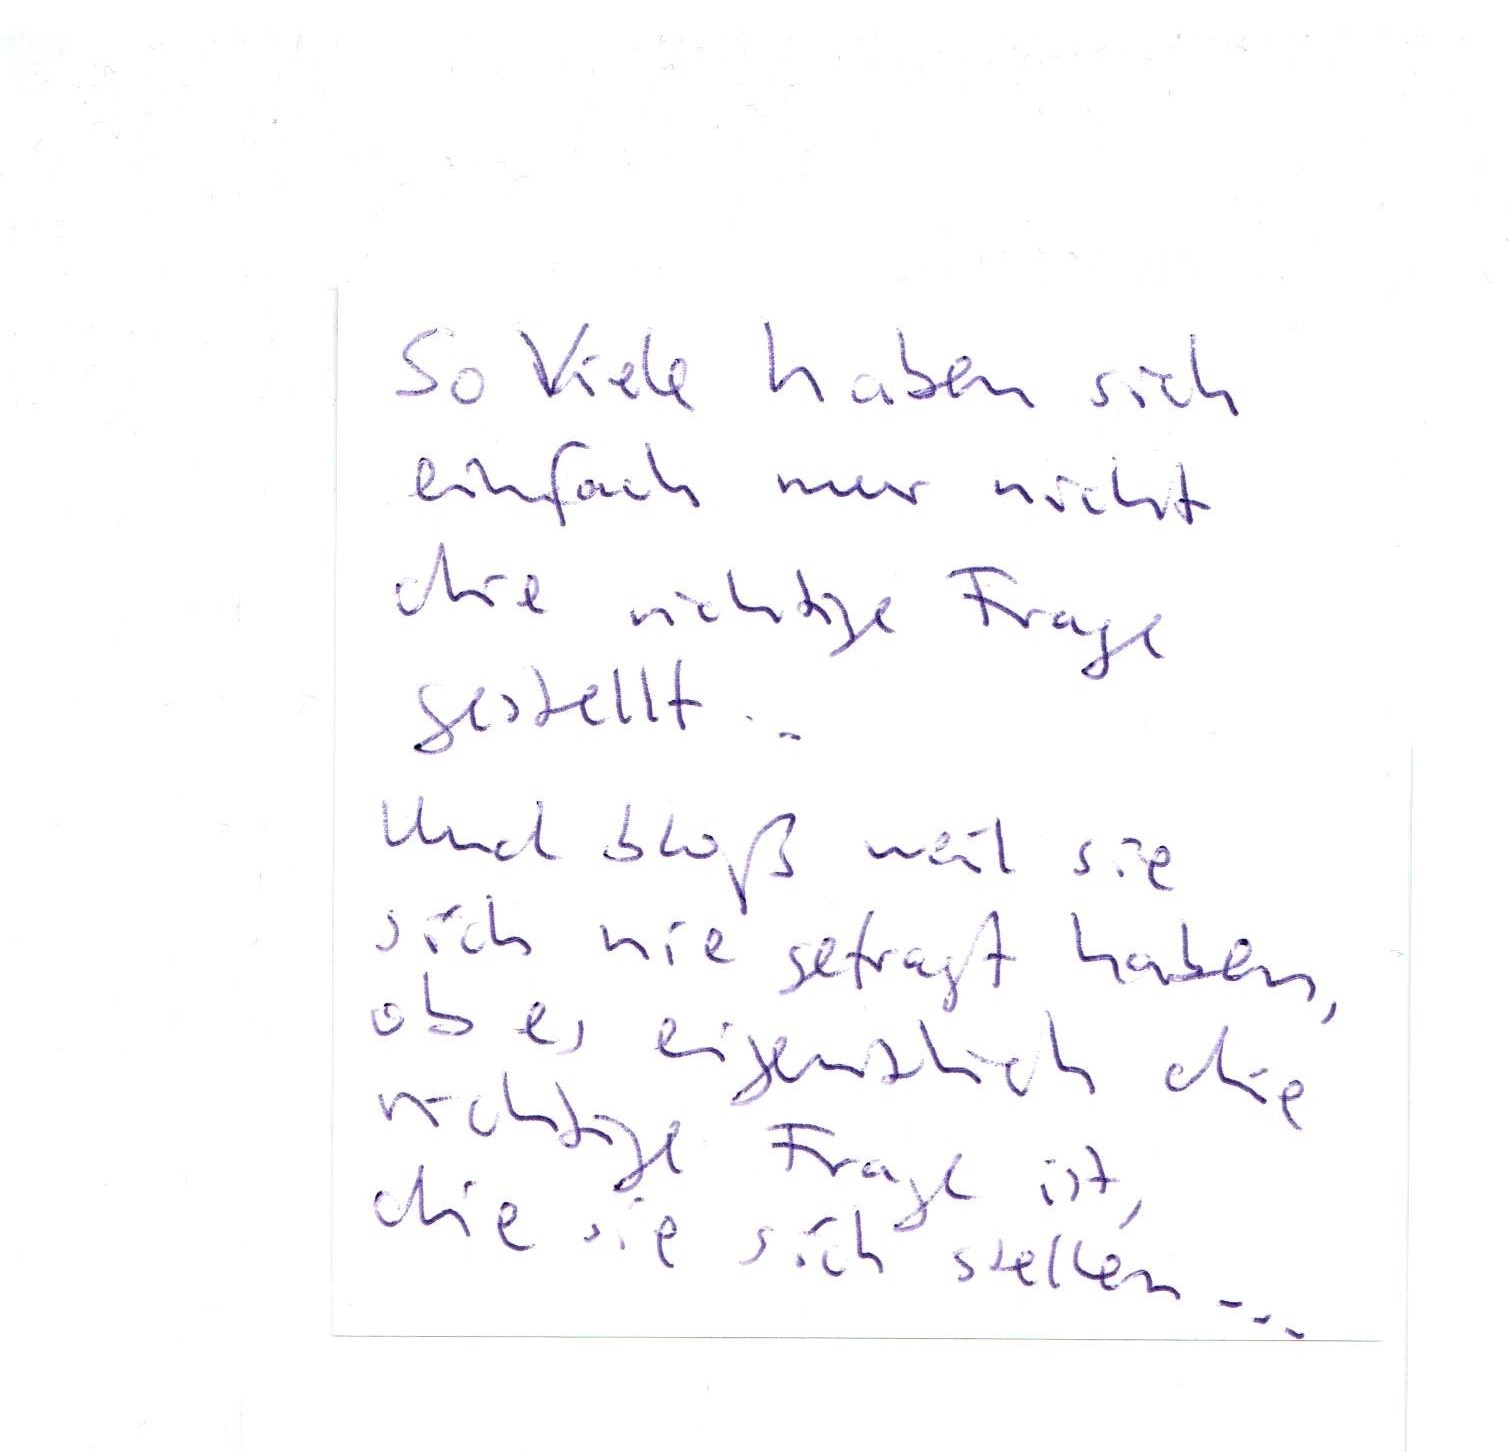 So Viele haben sich
einfach nur nicht
die richtige Frage
gestellt...
Und bloß weil sie
sich nie gefragt haben,
ob es eigentlich die
richtige Frage ist,
die sie sich stellen...